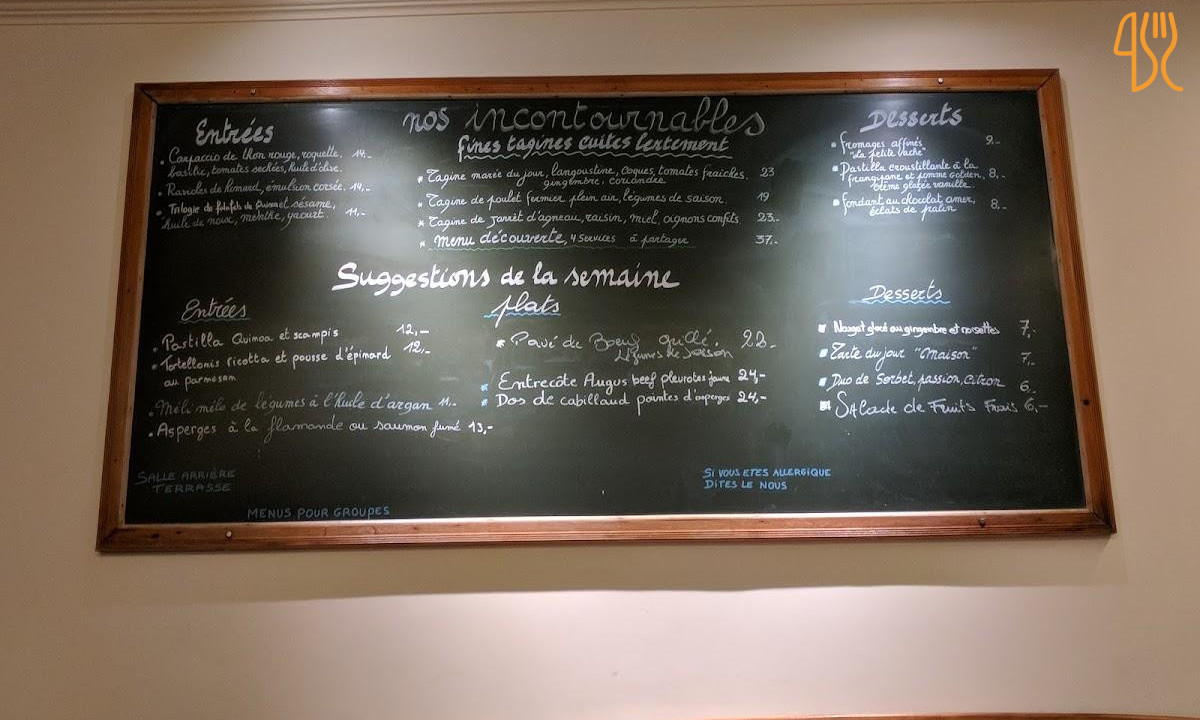 nos incontournables
fines tagines cuites lentement
Entrées
Carpaccio de thon rouge, roquette, 14.-
basilic, tomates sechées, huile d'olive.
Ravioles de homard, émulsion corsée. 14,-
Trilogie de falafels de Quinoa et sésame,
huile de noix, menthe, yaourt. 11,-
Tagine marée du jour, langoustine, coques, tomates fraiches. 23
gingembre, coriandre
Tagine de poulet fermier plein air, legumes de saison. 19
Tagine de jarret d'agneau, raisin, miel, oignons confits 23.-
Menu découverte, 4 services à partager 37.-
Desserts
fromages affinés 9.-
"La petite vache"
Pastilla croustillante à la
frangipane et pomme golden, 8,-
crème glacée vanille.
fondant au chocolat amer, 8,-
éclats de pralin
Suggestions de la semaine
Entrées
Pastilla Quinoa et scampis 12,-
Tortellonis ricotta et pousse d'épinard 12,-
au parmesan
Méli mélo de légumes à l'huile d'argan 11.-
Asperges à la flamande ou saumon fumé 13,-
plats
Pavé de Boeuf grillé. 22.-
Légumes de saison
Entrecôte Augus beef pleurotes jaune 24,-
Dos de cabillaud pointes d'asperges 24,-
Desserts
Nougat glacé au gingembre et noisettes 7,-
Tarte du jour "Maison" 7,-
Duo de Sorbet, passion, citron 6,-
Salade de Fruits Frais 6,-
SALLE ARRIÈRE
TERRASSE
MENUS POUR GROUPES
SI VOUS ETES ALLERGIQUE
DITES LE NOUS